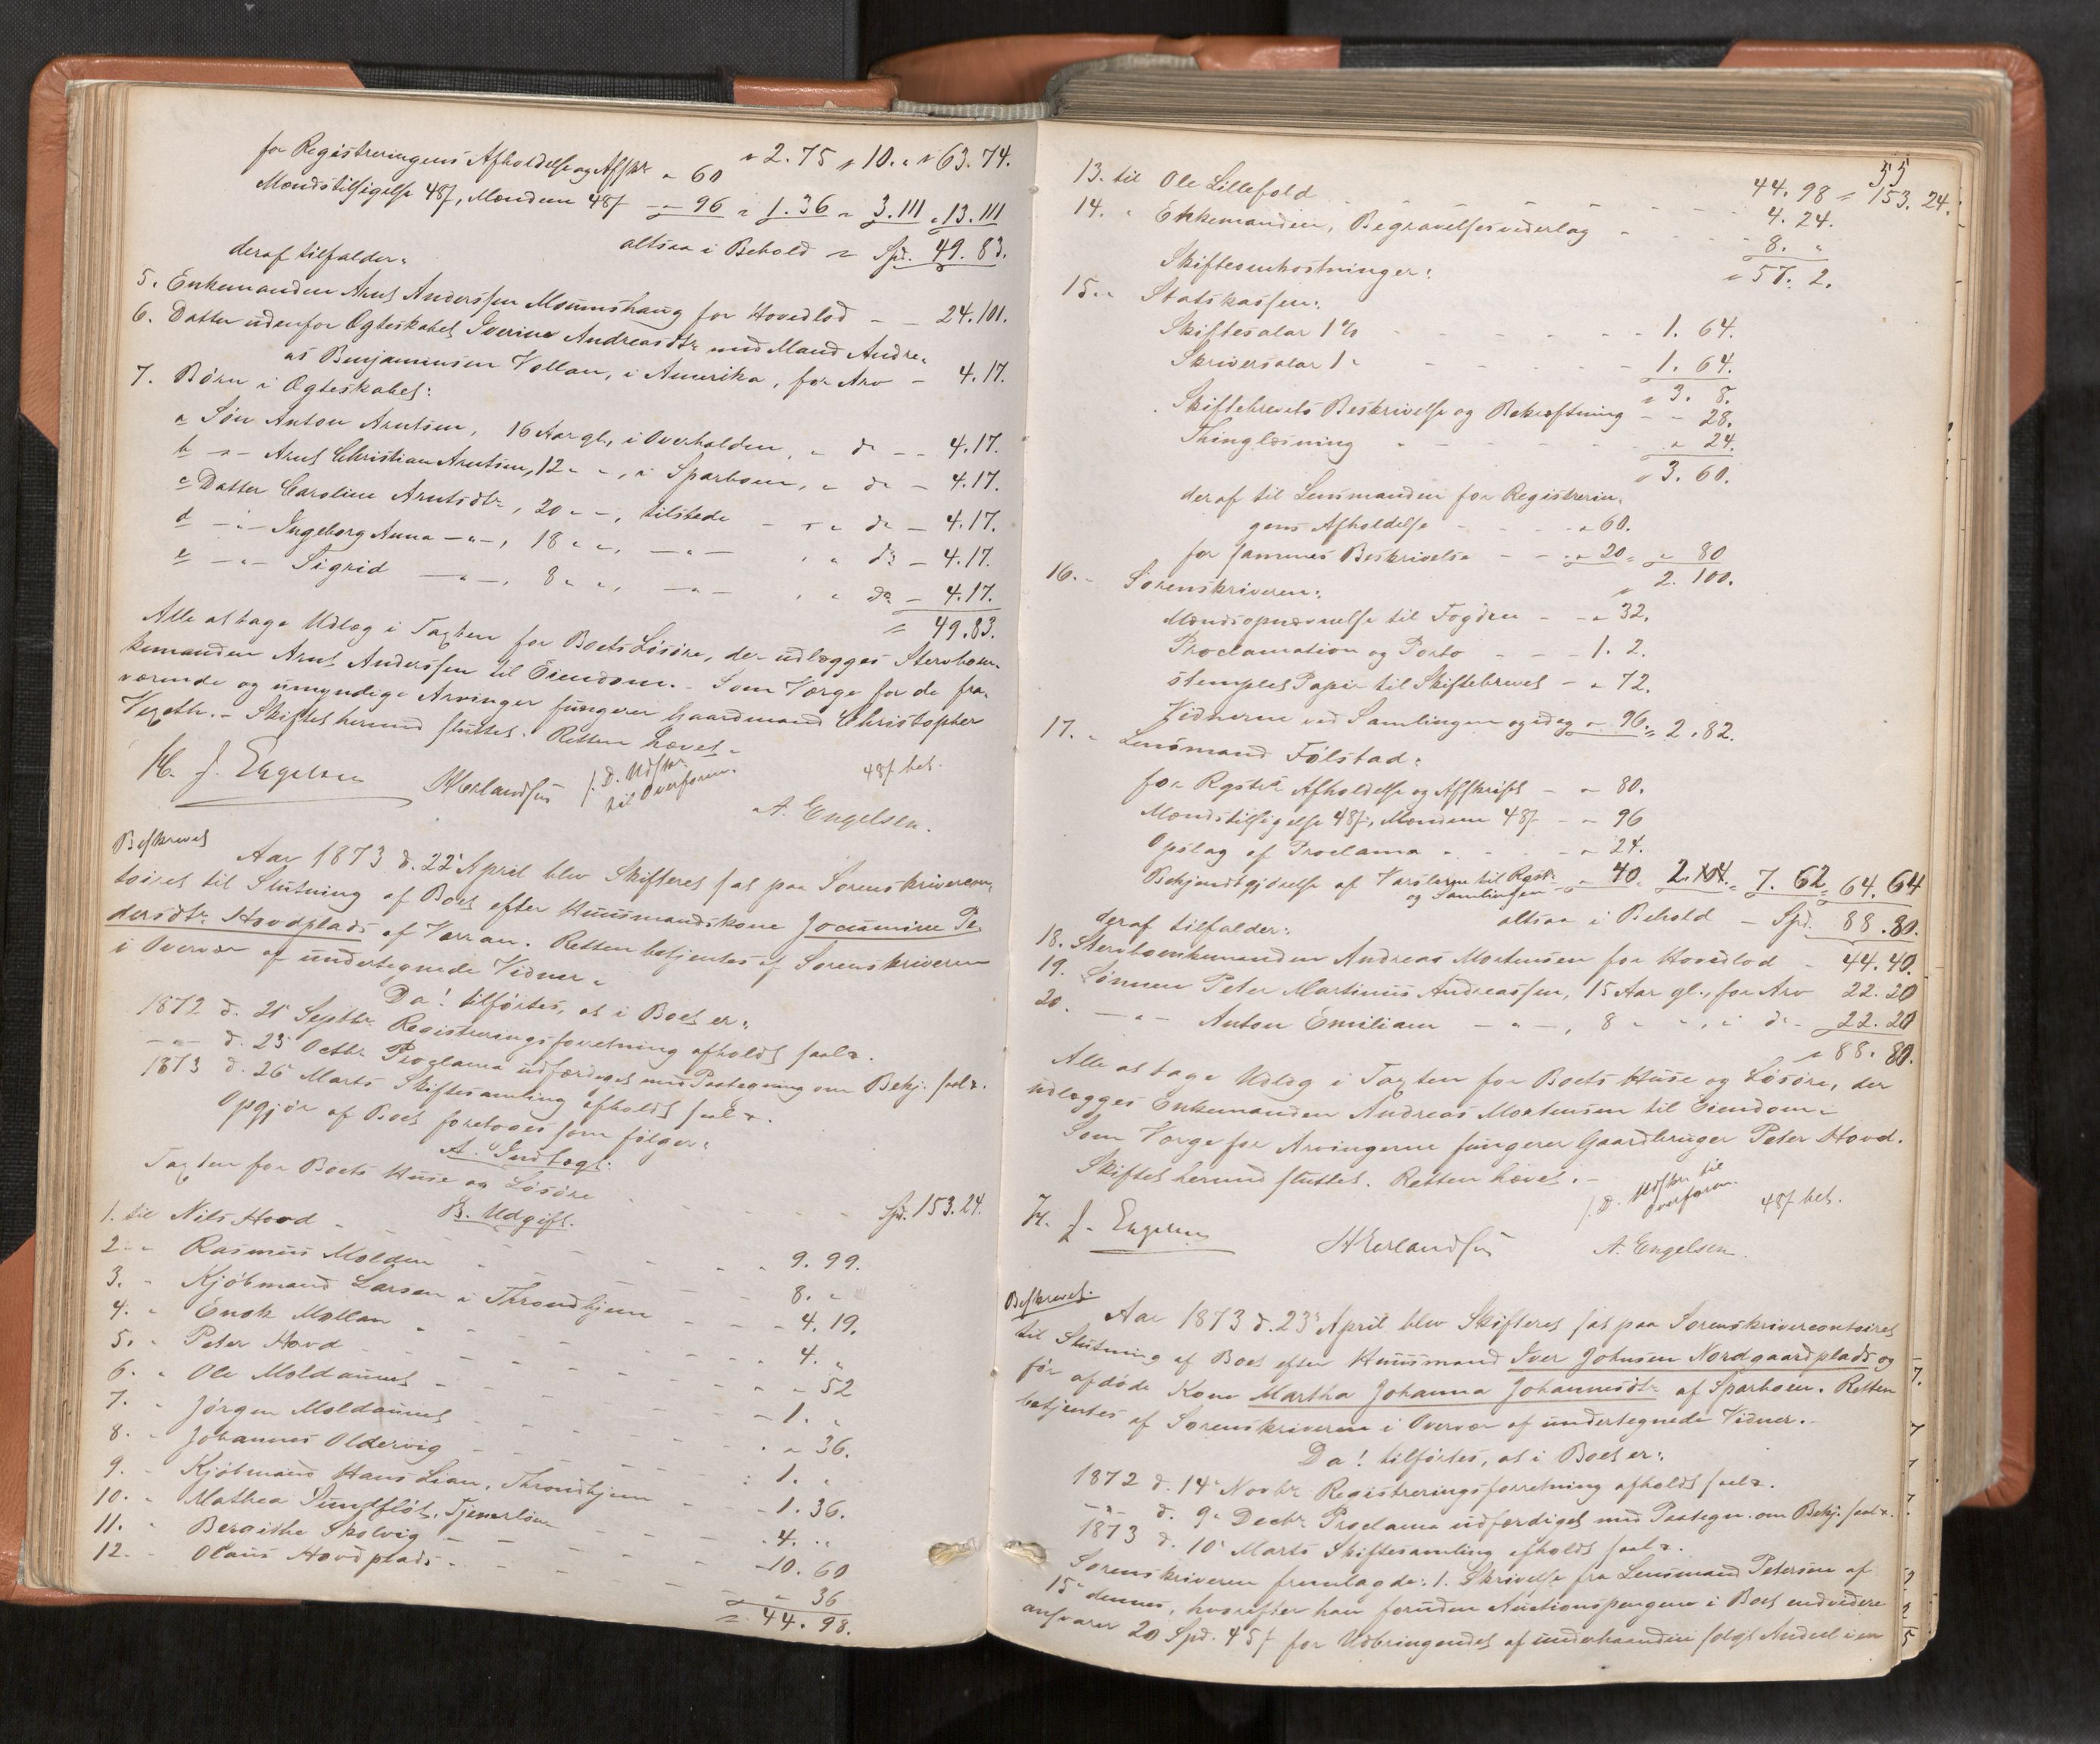 for Registreringens Afholdelse og Afskr. " 60 " 2. 75 " 10. " " 63. 74.
Mændstilsigelse 48 s, Mændene 48 s – " 96 " 1. 36 " 3. 111 " 13. 111
altsaa i Behold = Spd. 49. 83.
deraf tilfalder:
5. Enkemanden Arnt Anderssen Mounshaug for Hovedlod – – 24. 101.
6. Datter udenfor Ægteskabet Iverine Andreasdtr med Mand Andre-
as Benjaminsen Vollan, i Amerika, for Arv – 4. 17.
7. Børn i Ægteskabet:
a Søn Anton Arntsen, 16 Aar gl., i Overhalden, " do – – 4. 17.
b – " – Arnt Christian Arntsen, 12 " " , i Sparboen, " do – 4. 17.
c Datter Caroline Arntsdtr, 20 " – , tilstede – " " do – 4. 17.
d – " – Ingeborg Anna – " – , 18 " " , – " – , " do – 4. 17.
e – " – Sigrid – " – , 8 " " , – " – , " do – 4. 17.
= 49. 83.
Alle at tage Udlæg i Taxten for Boets Løsøre, der udlægges Sterboen-
kemanden Arnt Anderssen til Eiendom. – Som Værge for de fra-
værende og umyndige Arvinger fungerer Gaardmand Christopher
Vexeth. – Skiftet hermed sluttet. Retten hævet. –
H. J. Engelsen HErlandsen f. D. Udskr. til Overform. 48 s bet.
A. Engelsen.
Beskrevet
Aar 1873 d. 22 April blev Skifteret sat paa Sorenskrivercon-
toiret til Slutning af Boet efter Huusmandskone Jocumine Pe-
dersdtr Hovdplads af Verran. Retten betjentes af Sorenskriveren
i Overvær af undertegnede Vidner. –
Da! tilførtes, at i Boet er:
1872 d. 21 Septbr. Registreringsforretning afholdt saal.
– " – d. 23 Octbr. Proclama udfærdiget med Paategning om Bekj. saal.
1873 d. 26 Marts Skiftesamling afholdt saal.
Opgjør af Boet foretoges som følger:
A. Indtægt.
Taxten for Boets Huse og Løsøre – – – – – Spd. 153. 24.
B. Udgift.
1. til Nils Hovd – – – – – 9. 99.
2. " Rasmus Molden – – – – 8. "
3. " Kjøbmand Larsen i Throndhjem – – – 4. 19.
4. " Enok Mollan – – – – – 4. "
5. " Peter Hovd – – – – – " 52
6. " Ole Moldaunet – – – – – 1. "
7. " Jørgen Moldaunet – – – – " 36.
8. " Johannes Oldervig – – – – 1. "
9. " Kjøbmand Hans Lian, Throndhjem – – 1. 36.
10. " Mathea Sundfløt, Tjenerløn – – – 4. "
11. " Beraithe Skolvig – – – – 10. 60
12. " Olaus Hovdplads – – – – " 36
= 44. 98.
55
44. 98 = 153. 24.
13. til Ole Lillefold – – – – – 4. 24.
14. " Enkemanden, Begravelsesvederlag – – 8. "
" 57. 2.
Skifteomkostninger:
15. " Statskassen:
Skiftesalær 1 % – – – – 1. 64.
Skriversalær 1 " – – – – 1. 64.
" 3. 8.
Skiftebrevets Beskrivelse og Bekræftning – – 28.
Thinglæsning – – – – " 24.
" 3. 60.
deraf til Lensmanden for Registrerin-
gens Afholdelse – – – " 60.
for sammes Beskrivelse – – " 20 = " 80
" 2. 100.
16. " Sorenskriveren:
Mændsopnævnelse til Fogden – – " 32.
Proclamation og Porto – – – 1. 2.
stemplet Papir til Skiftebrevet – " 72.
Vidnerne ved Samlingen og idag – " 96 = 2. 82.
17. " Lensmand Følstad:
for Rgstr. Afholdelse og Afskrift – " 80.
Mændstilsigelse 48 s, Mændene 48 s – " 96
Opslag af Proclama " – – " 24.
Bekjendtgjørelse af Varslerne til Rgstr. og Samlingen – " 40 2. 104 = 7. 62 = 64. 64
altsaa i Behold – Spd. 88. 80.
deraf tilfalder:
18. Sterboenkemanden Andreas Mortensen for Hovedlod – 44. 40.
19. Sønnen Peter Martinus Andreassen, 15 Aar gl., for Arv 22. 20
20. – " – Anton Emilian – " – , 8 " " , " do – 22. 20
" 88. 80.
Alle at tage Udlæg i Taxten for Boets Huse og Løsøre, der
udlægges Enkemanden Andreas Mortensen til Eiendom. –
Som Værge for Arvingerne fungerer Gaardbruger Peter Hovd.
Skiftet hermed sluttet. Retten hævet. –
H. J. Engelsen HErlandsen f. D. Udskr. til Overform. 48 s bet.
A. Engelsen.
Beskrevet.
Aar 1873 d. 23 April blev Skifteret sat paa Sorenskrivercontoiret
til Slutning af Boet efter Huusmand Iver Johnsen Nordgaardplads og
før afdøde Kone Martha Johanna Johannesdtr af Sparboen. Retten
betjentes af Sorenskriveren i Overvær af undertegnede Vidner. –
Da! tilførtes, at i Boet er:
1872 d. 14 Novbr. Registreringsforretning afholdt saal.
– " – d. 9 Decbr. Proclama udfærdiget med Paategn. om Bekj. saal.
1873 d. 10 Marts Skiftesamling afholdt saal.
Sorenskriveren fremlagde: 1. Skrivelse fra Lensmand Petersen af
15 dennes, hvorefter han foruden Auctionspengene i Boet endvidere
ansvarer 20 Spd. 45 s for Udbringendet af underhaanden solgt Andeel i en